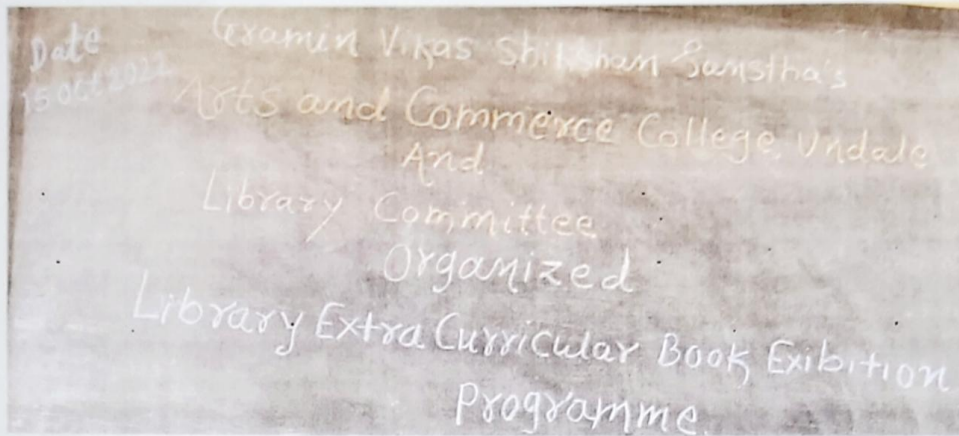 Date
15 Oct 2022
Gramin Vikas Shikshan Sanstha's
Arts and Commerce College, Undale
And
Library Committee
Organized
Library Extra Curricular Book Exibition
Programme.